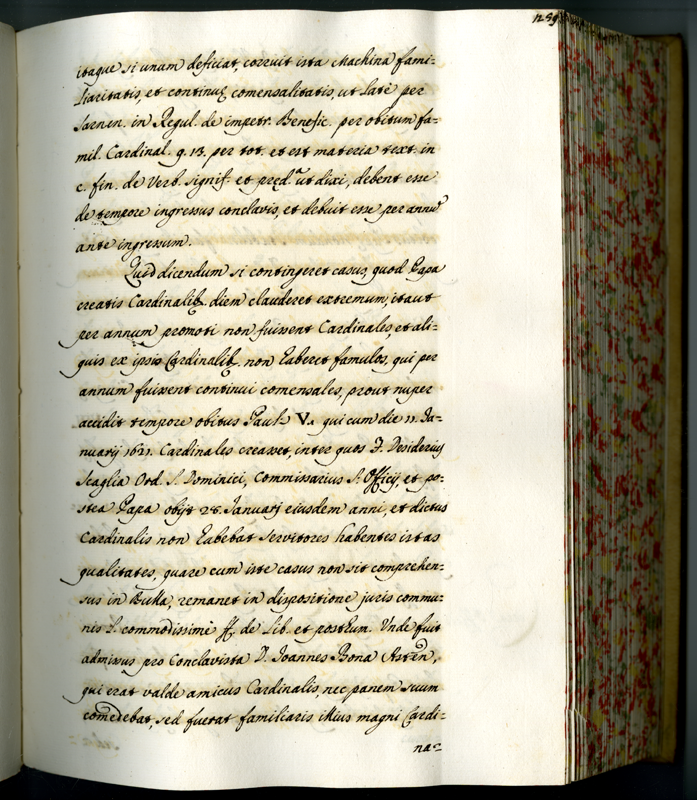 1259
itaque si unam deficiat, corruit ista Machina fami:
liaritatis, et continuę comensalitatis, ut latè per
Sarnen. in Regul. de impetr. Benefic. per obitum fa=
mil. Cardinal. q. 13. per tot. et est materia text. in
c. fin. de Verb. signif. et pred.ᵃ ut dixi, debent esse
de tempore ingressus conclavis, et debuit esse per annũ
ante ingressum.
Quid dicendum si contingeret casus, quod Papa
creatis Cardinalib. diem clauderet extremum, itaut
per annum promoti non fuissent Cardinales, et ali=
quis ex ipsis Cardinalib. non haberet famulos, qui per
annum fuissent continui comensales, prout nuper
accidit tempore obitus Pauli V. qui cum die 11. Ja=
nuarij 1621. Cardinales creasset, inter quos F. Desiderius
Scaglia Ord. S. Dominici, Commissarius S. Officij, et po=
stea Papa obijt 28. Januarj eiusdem anni, et dictus
Cardinalis non habebat servitores habentes istas
qualitates, quare cum iste casus non sit comprehen=
sus in Bulla, remanet in dispositione juris commu=
nis l. commodissimè ff. de lib. et posthum. Unde fuit
admissus pro Conclavista D. Joannes Bona Asten,
qui erat valde amicus Cardinalis, nec panem suum
comedebat, sed fuerat familiaris illius magni Cardi=
na=